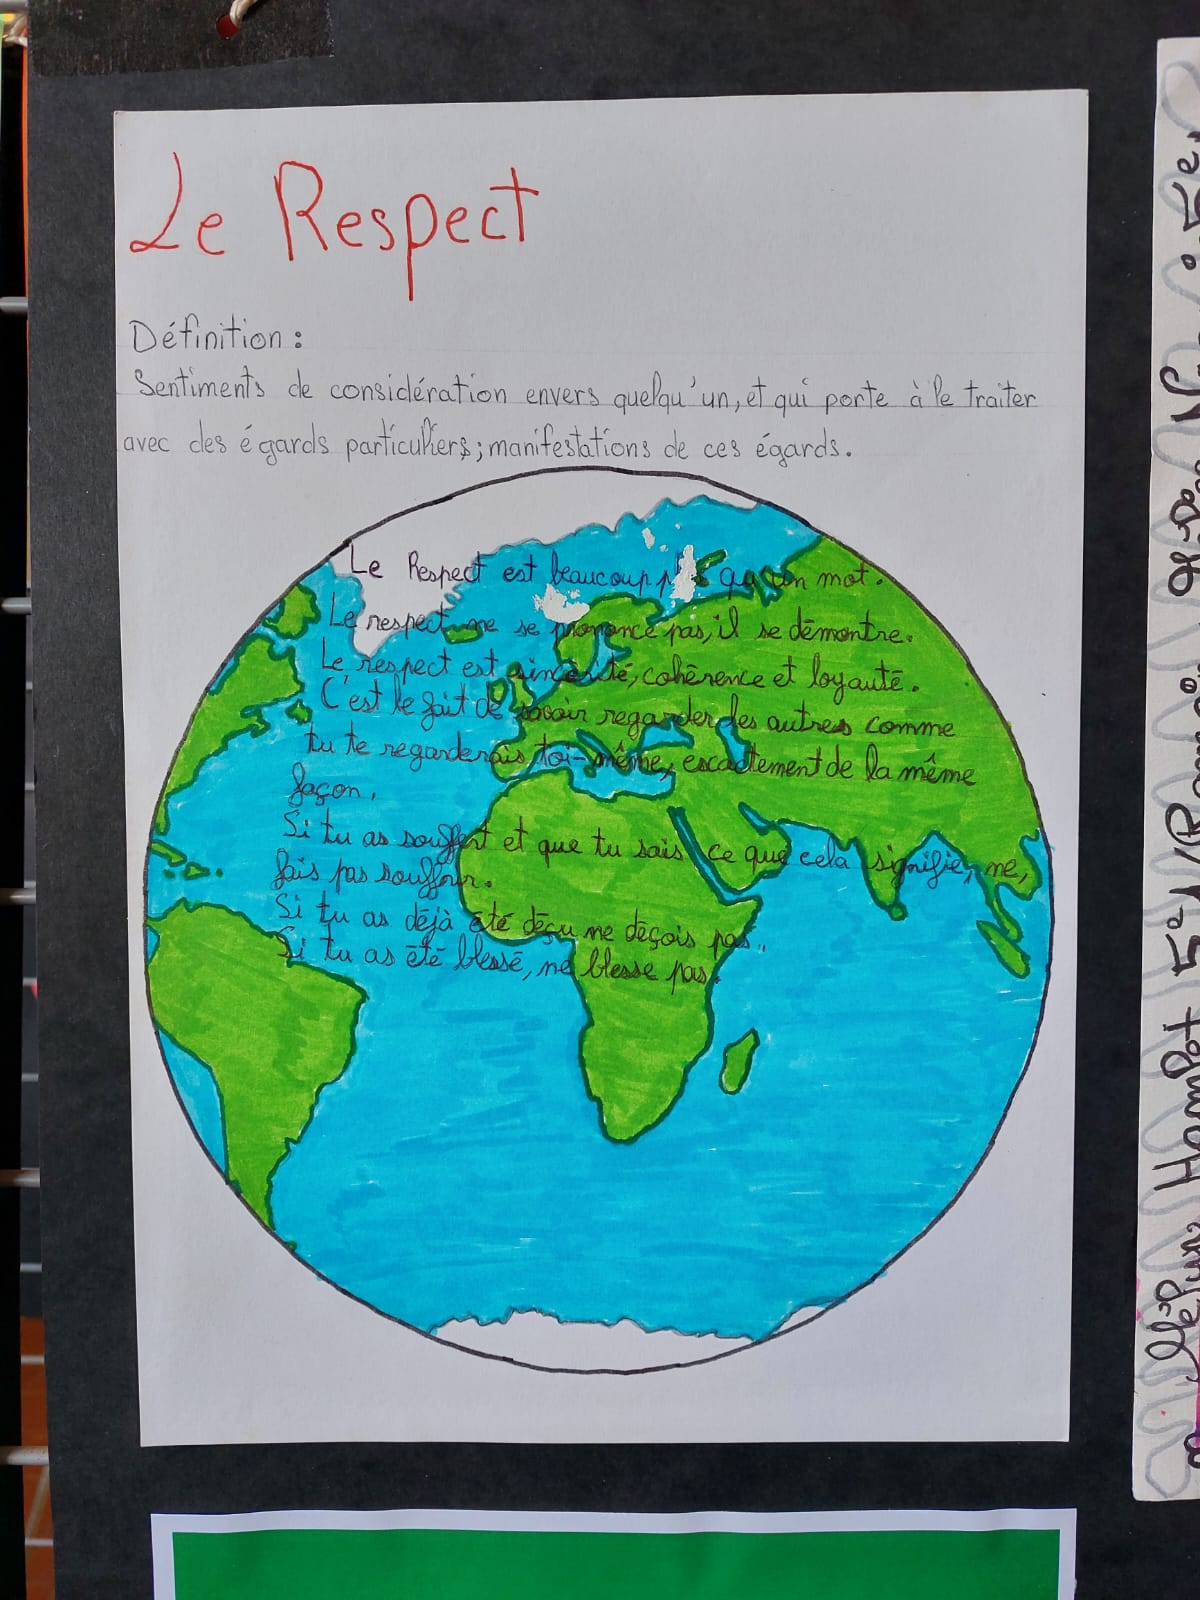 Le Respect
Définition :
Sentiments de considération envers quelqu'un, et qui porte à le traiter
avec des égards particuliers; manifestations de ces égards.
Le Respect est beaucoup plus qu'un mot.
Le respect ne se prononce pas, il se démontre.
Le respect est sincérité, cohérence et loyauté.
C'est le fait de savoir regarder les autres comme
tu te regarderais toi-même, escactement de la même
façon.
Si tu as souffert et que tu sais ce que cela signifie, ne,
fais pas souffrir.
Si tu as déjà été déçu ne deçois pas..
Si tu as été blessé, ne blesse pas.